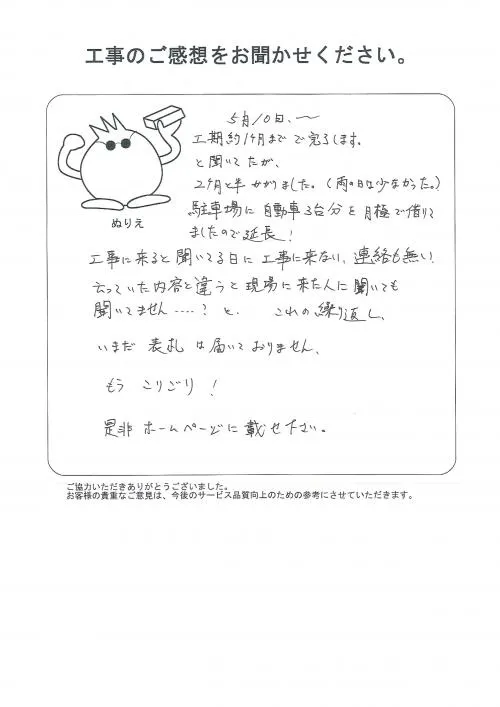 工事のご感想をお聞かせください。
5月10日、〜
工期約1ケ月までで完了します。
と聞いてたが、
2ケ月と半かかりました。(雨の日は少なかった。)
駐車場に自動車3台分を月極で借りて
ましたので延長!
ぬりえ
工事に来ると聞いてる日に工事に来ない、連絡も無い!
云っていた内容と違うと現場に来た人に聞いても
聞いてません‥‥?と、これの繰り返し、
いまだ 表札 は届いておりません、
もう こりごり!
是非 ホームページに載せ下さい。
ご協力いただきありがとうございました。
お客様の貴重なご意見は、今後のサービス品質向上のための参考にさせていただきます。